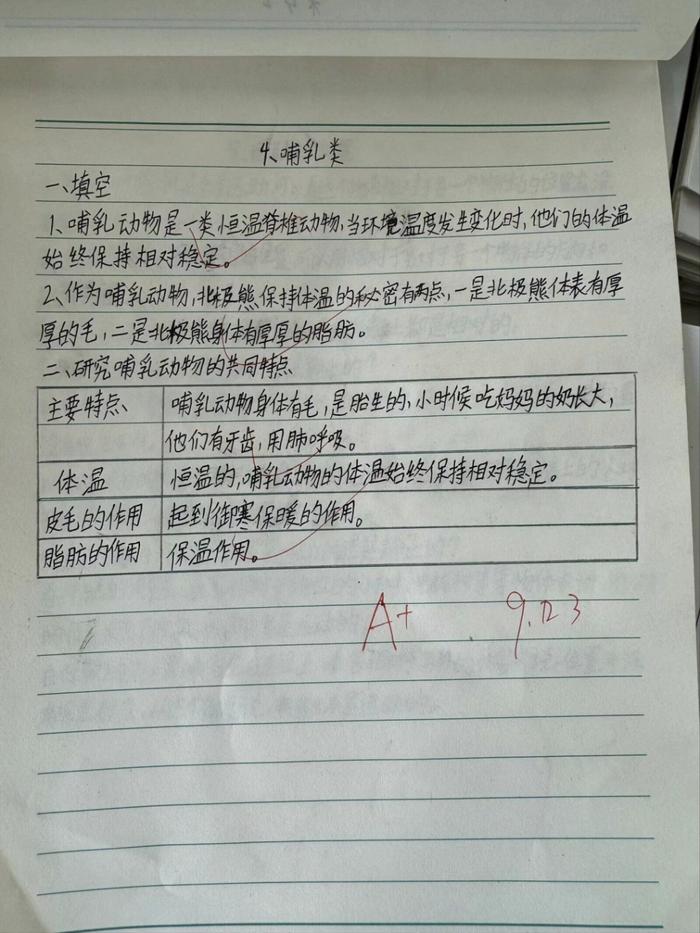 4、哺乳类
一、填空
1、哺乳动物是一类恒温脊椎动物,当环境温度发生变化时,他们的体温
始终保持相对稳定。
2、作为哺乳动物,北极熊保持体温的秘密有两点,一是北极熊体表有厚
厚的毛,二是北极熊身体有厚厚的脂肪。
二、研究哺乳动物的共同特点
主要特点 哺乳动物身体有毛,是胎生的,小时候吃妈妈的奶长大,
他们有牙齿,用肺呼吸。
体温 恒温的,哺乳动物的体温始终保持相对稳定。
皮毛的作用 起到御寒保暖的作用。
脂肪的作用 保温作用。
A+